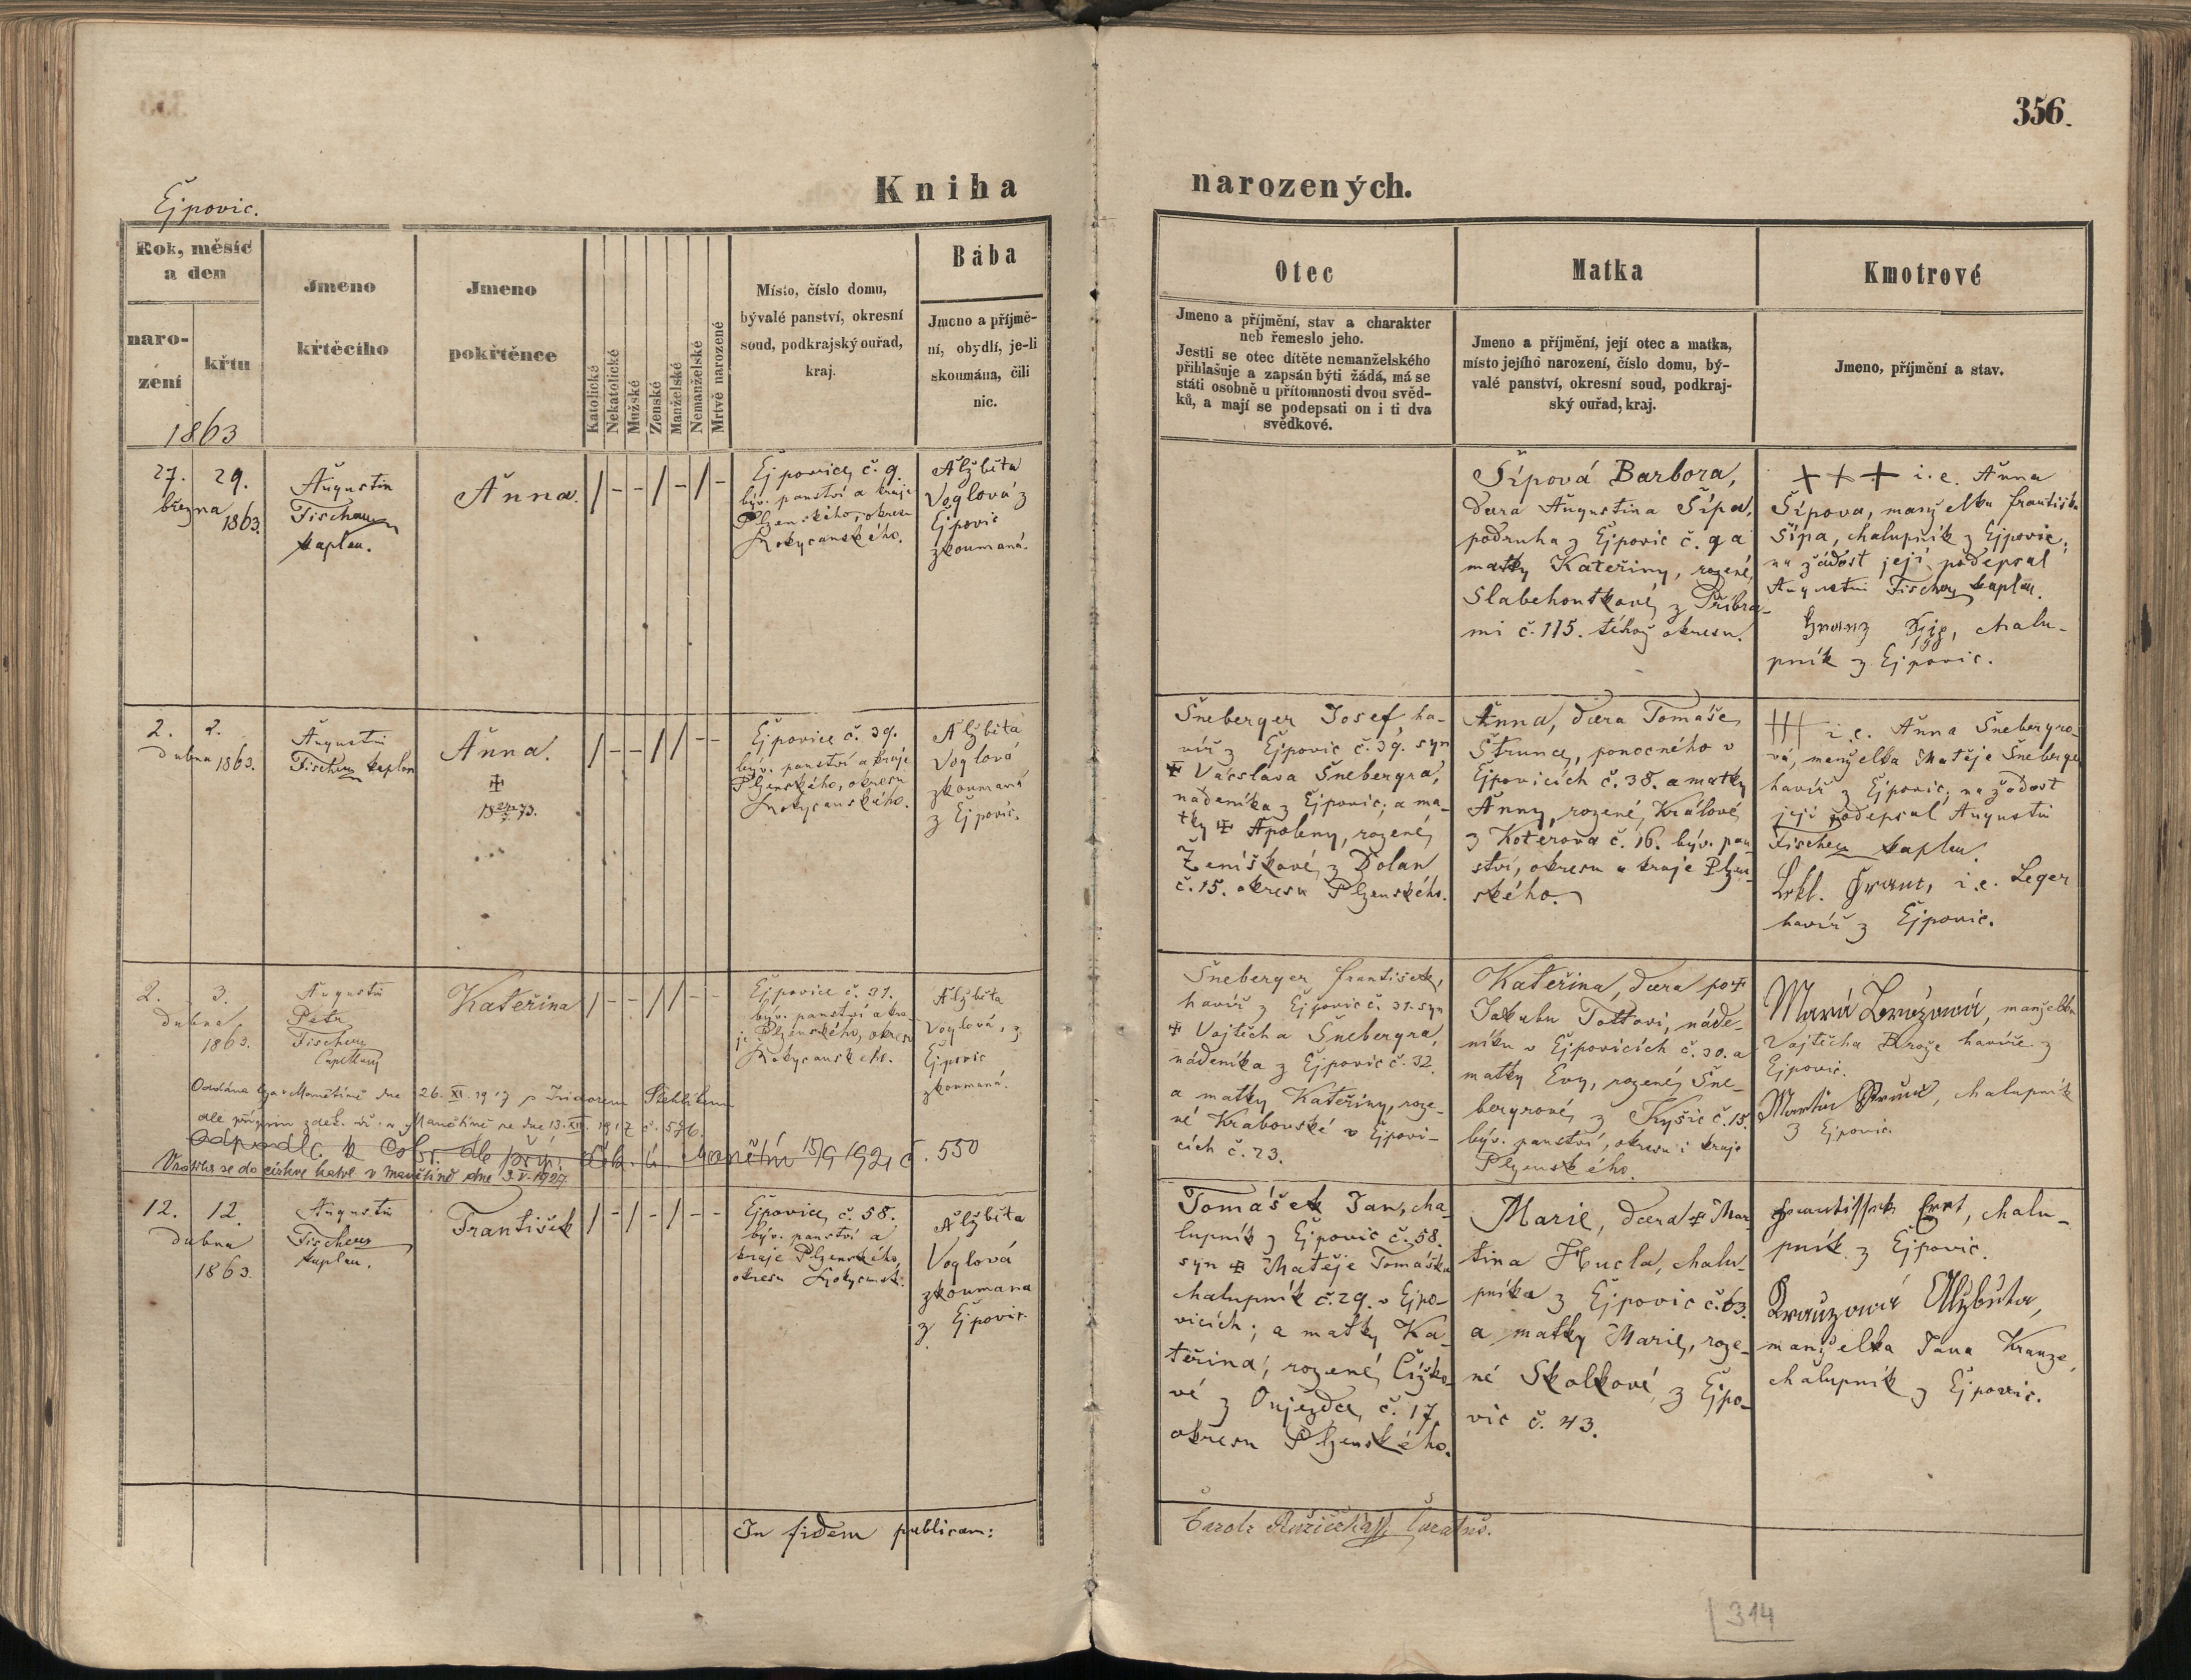 356.
Kniha narozených.
Ejpovic.
Rok, měsíc
a den
naro-
zení
křtu
1863
Jmeno
křtěcího
Jmeno
pokřtěnce
Katolické
Nekatolické
Mužské
Ženské
Manželské
Nemanželské
Mrtvě narozené
Místo, číslo domu,
bývalé panství, okresní
soud, podkrajský ouřad,
kraj.
Bába
Jmeno a příjmě-
ní, obydlí, je-li
skoumána, čili
nic.
Otec
Jmeno a příjmění, stav a charakter
neb řemeslo jeho.
Jestli se otec dítěte nemanželského
přihlašuje a zapsán býti žádá, má se
státi osobně u přítomnosti dvou svěd-
ků, a mají se podepsati on i ti dva
svědkové.
Matka
Jmeno a příjmění, její otec a matka,
místo jejího narození, číslo domu, bý-
valé panství, okresní soud, podkraj-
ský ouřad, kraj.
Kmotrové
Jmeno, příjmění a stav.
27. 29.
března
1863.
Augustin
Fischer
kaplan.
Anna.
/ - - / - / -
Ejpovice, č. 9.
býv. panství a kraje
Plzenského, okresu
Rokycanského.
Alžběta
Voglová z
Ejpovic
zkoumaná.
Šípová Barbora,
dcera Augustina Šípa,
podruha z Ejpovic č. 9 a
matky Kateřiny, rozené
Slabehoutkové, z Příbra-
mi č. 115. téhož okresu.
+ + + i. e. Anna
Šípova, manželka Františka
Šípa, chalupník z Ejpovic;
na žádost její podepsal
Augustin Fischer kaplan.
Franz, chalu-
pník z Ejpovic.
2. 2.
dubna 1863.
Augustin
Fischer kaplan
Anna.
/ - - / / - -
Ejpovice č. 39.
býv. panství a kraje
Plzenského, okresu
Rokycanského.
Alžbita
Voglová
zkoumaná
z Ejpovic.
Šneberger Josef, ha-
víř z Ejpovic č. 39. syn
✠ Vácslava Šnebergra,
nádeníka z Ejpovic; a ma-
tky ✠ Apoleny, rozené
Ženíškové, z Dolan
č. 15. okresu Plzenského.
Anna, dcera Tomáše
Štrunce, ponocného v
Ejpovicích č. 38. a matky
Anny, rozené Králové
z Koterova č. 16. býv. pan-
ství, okresu a kraje Plzen-
ského.
††† i. e. Anna Šnebergro-
vá, manželka Matěje Šneberg
havíř z Ejpovic; na žádost
její podepsal Augustin
Fischer kaplan.
i. e. Leger
havíř z Ejpovic.
2. 3.
dubna
1863.
Augustin
Petr
Fischer
Kateřina
/ - - / / - -
Ejpovice č. 31.
býv. panství a kra-
je Plzenského, okresu
Rokycanského.
Alžběta
Voglová, z
Ejpovic
zkoumaná.
Šneberger František,
havíř z Ejpovic č. 31. syn
✠ Vojtěcha Šnebergra,
nádeníka z Ejpovic č. 32.
a matky Kateřiny, roze-
né Krabovské v Ejpovi-
cích č. 23.
Kateřina, dcera po ✠
Jakubu Tottovi, náde-
níku v Ejpovicích č. 30. a
matky Evy, rozené Šne-
bergrové, z Kyšic č. 15.
býv. panství, okresu i kraje
Plzenského.
manželka
Vojtěcha Brože havíře z
Ejpovic.
Martin, chalupník
z Ejpovic.
Oddána v Manětíně dne 26. XI. 1917 s
č. 576.
15/9 1921 č. 550
Vrátila se do církve katol. v Manětíně dne 3. V. 1927
12. 12.
dubna
1863.
Augustin
Fischer
kaplan.
František
/ - / - / - -
Ejpovice, č. 58.
býv. panství a
kraje Plzenského,
okresu Rokycansk.
Alžbita
Voglová
zkoumana
z Ejpovic.
Tomášek Jan, cha-
lupník z Ejpovic č. 58.
syn ✠ Matěje Tomáška
chalupník č. 29. v Ejpo-
vicích; a matky Ka-
teřina, rozené Čížko-
vé z Oujezdce, č. 17.
okresu Plzenského.
Marie, dcera ✠ Mar
tina Hucla, chalu-
pníka z Ejpovic č. 63.
a matky Marie, roze-
né Skolkové, z Ejpo-
vic č. 43.
chalu-
pník z Ejpovic.
Krauzová Alžběta,
manželka Jana Krauze,
chalupník z Ejpovic.
In fidem publicam:
Carolus Růžička
314